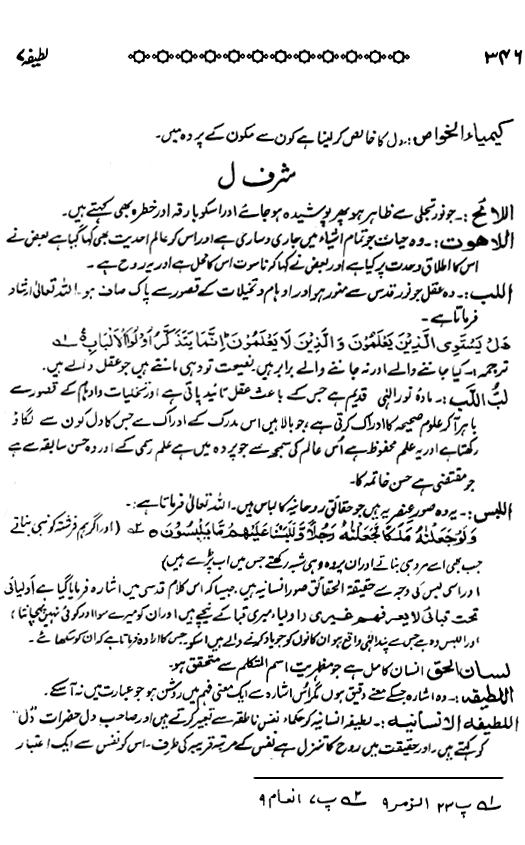 ۳۴۶ لطیفہ ۷
کیمیاء الخواص :۔ دل کا خالص کرلینا ہے کون سے مکون کے پردہ میں۔
شرف ل
اللائح :۔ جو نور تجلی سے ظاہر ہو پھر پوشیدہ ہو جائے اور اسکو بارقہ اور خطرہ بھی کہتے ہیں۔
اللاهوت :۔ وہ حیات جو تمام اشیاء میں جاری و ساری ہے اور اس کو عالم احدیت بھی کہا گیا ہے بعض نے
اس کا اطلاق وحدت پر کیا ہے اور بعض نے کہا کہ ناسوت اس کا محل ہے اور یہ روح ہے ۔
اللب :۔ وہ عقل جو نور قدس سے منور ہو اور اوہام و تخیلات کے قصور سے پاک صاف ہو۔ اللہ تعالیٰ ارشاد
فرماتا ہے۔
هَلْ يَسْتَوِى الَّذِيْنَ يَعْلَمُوْنَ وَالَّذِيْنَ لَا يَعْلَمُوْنَ اِنَّمَا يَتَذَكَّرُ اُولُوا الْاَلْبَابِ ۱
ترجمہ :۔ کیا جاننے والے اور نہ جاننے والے برابر ہیں نصیحت تو وہی مانتے ہیں جو عقل والے ہیں۔
لُبُّ اللُّب :۔ مادۂ نور الٰہی قدیم ہے جس کے باعث عقل تائید پاتی ہے اور تخیلات و اوہام کے قصور سے
باہر آکر علوم صحیحہ کا ادراک کرتی ہے، جو بالا ہیں اس مدرک کے ادراک سے جس کا دل کون سے لگاؤ
رکھتا ہے اور یہ علم محفوظ ہے اُس عالم کی سمجھ سے جو پردہ میں ہے علم رسمی کے اور وہ حسن سابقہ سے ہے
جو مقتضی ہے حسن خاتمہ کا۔
اللبس :۔ یہ وہ صور عنصریہ ہیں جو حقائق روحانیہ کا لباس ہیں۔ اللہ تعالیٰ فرماتا ہے :۔
وَلَوْ جَعَلْنٰهُ مَلَكًا لَّجَعَلْنٰهُ رَجُلًا وَّلَلَبَسْنَا عَلَيْهِمْ مَّا يَلْبِسُوْنَ ۲ (اور اگر ہم فرشتہ کو نبی بناتے
جب بھی اسے مرد ہی بناتے اور ان پر وہ وہی شبہ رکھتے جس میں اب پڑے ہیں)
اور اسی لبس کی وجہ سے حقیقۃ الحقائق صور انسانیہ ہیں، جیسا کہ اس کلام قدسی میں اشارہ فرمایا گیا ہے اولیائی
تحت قبائی لا یعرفهم غیری (اولیاء میری قبا کے نیچے ہیں اور ان کو میرے سوا اور کوئی نہیں پہچانتا)
لسان الحق انسان کامل ہے جو مظہریت اسم المتکلم سے متحقق ہو۔
اللطیفه :۔ وہ اشارہ جسکے معنے دقیق ہوں مگر اس اشارہ سے ایک معنی فہم میں روشن ہو جو عبارت میں نہ آسکے۔
اللطیفه الانسانیه :۔ لطیفہ انسانیہ کو حکماء نفس ناطقہ سے تعبیر کرتے ہیں اور صاحب دل حضرات "دل"
کو کہتے ہیں۔ اور حقیقت میں روح کا تنزل ہے نفس کے مرتبہ قریبہ کی طرف۔ اس کو نفس سے ایک اعتبار
۱ پ ۲۳ الزمر ۹ ۲ پ ۷ انعام ۹